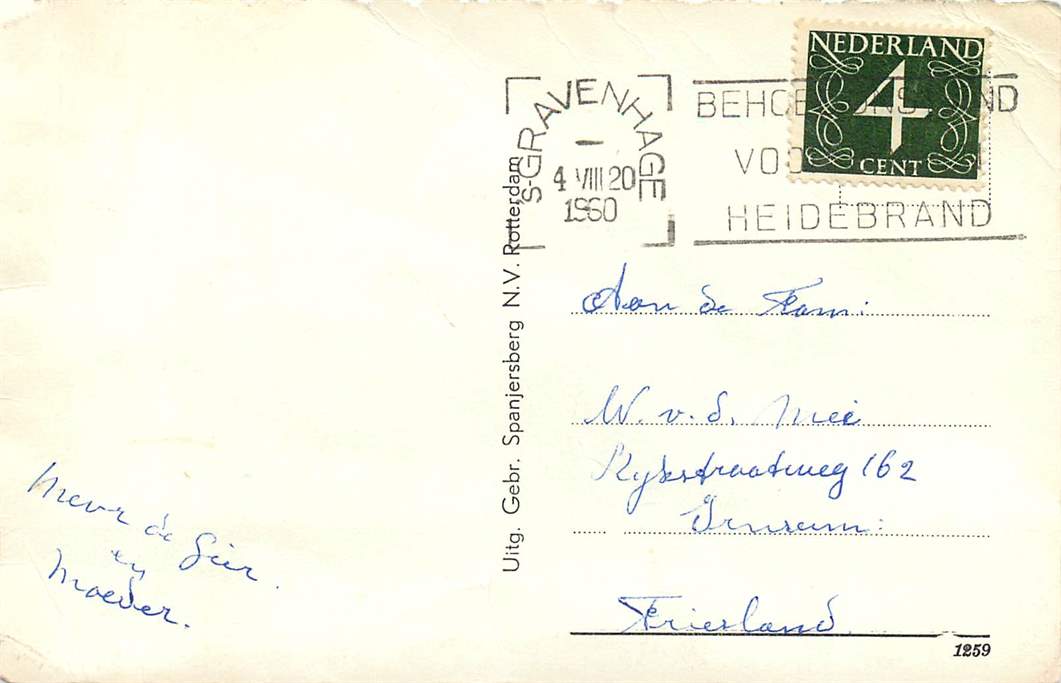 NEDERLAND
4
CENT
'S-GRAVENHAGE
4 VIII 20
1960
HEIDEBRAND
Uitg. Gebr. Spanjersberg N.V. Rotterdam
Aan de Fam:
W. v. d. Meie
Rijkstraatweg 162
Irnsum:
Friesland
1259
Mevr de Gier.
en
Moeder.